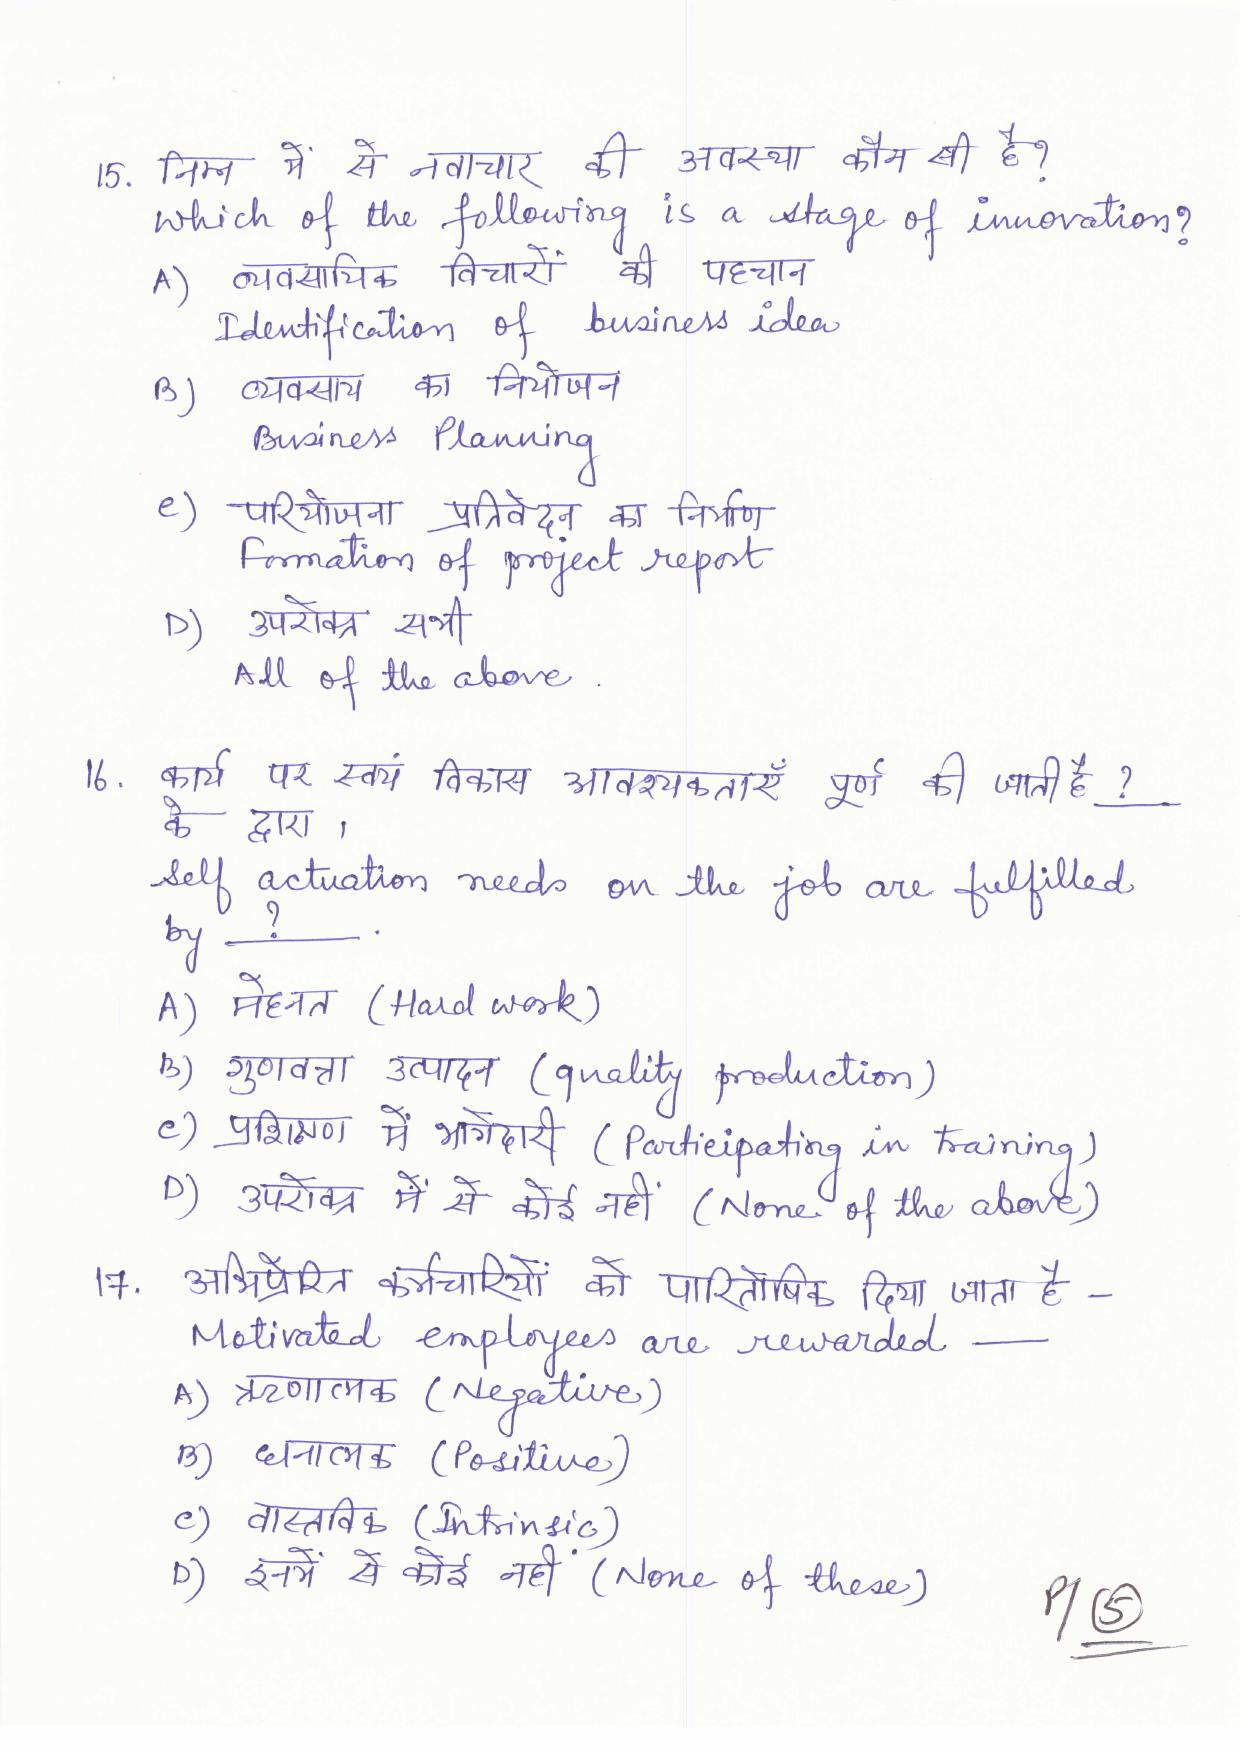 15. निम्न में से नवाचार की अवस्था कौन सी है?
Which of the following is a stage of innovation?
A) व्यवसायिक विचारों की पहचान
Identification of business idea
B) व्यवसाय का नियोजन
Business Planning
C) परियोजना प्रतिवेदन का निर्माण
Formation of project report
D) उपरोक्त सभी
All of the above.
16. कार्य पर स्वयं विकास आवश्यकताएँ पूर्ण की जाती है ?
के द्वारा ।
Self actuation needs on the job are fulfilled
by ? .
A) मेहनत (Hard work)
B) गुणवत्ता उत्पादन (quality production)
C) प्रशिक्षण में भागेदारी (Participating in training)
D) उपरोक्त में से कोई नहीं (None of the above)
17. अभिप्रेरित कर्मचारियों को पारितोषिक दिया जाता है –
Motivated employees are rewarded —
A) ऋणात्मक (Negative)
B) धनात्मक (Positive)
C) वास्तविक (Intrinsic)
D) इनमें से कोई नहीं (None of these)
P/5